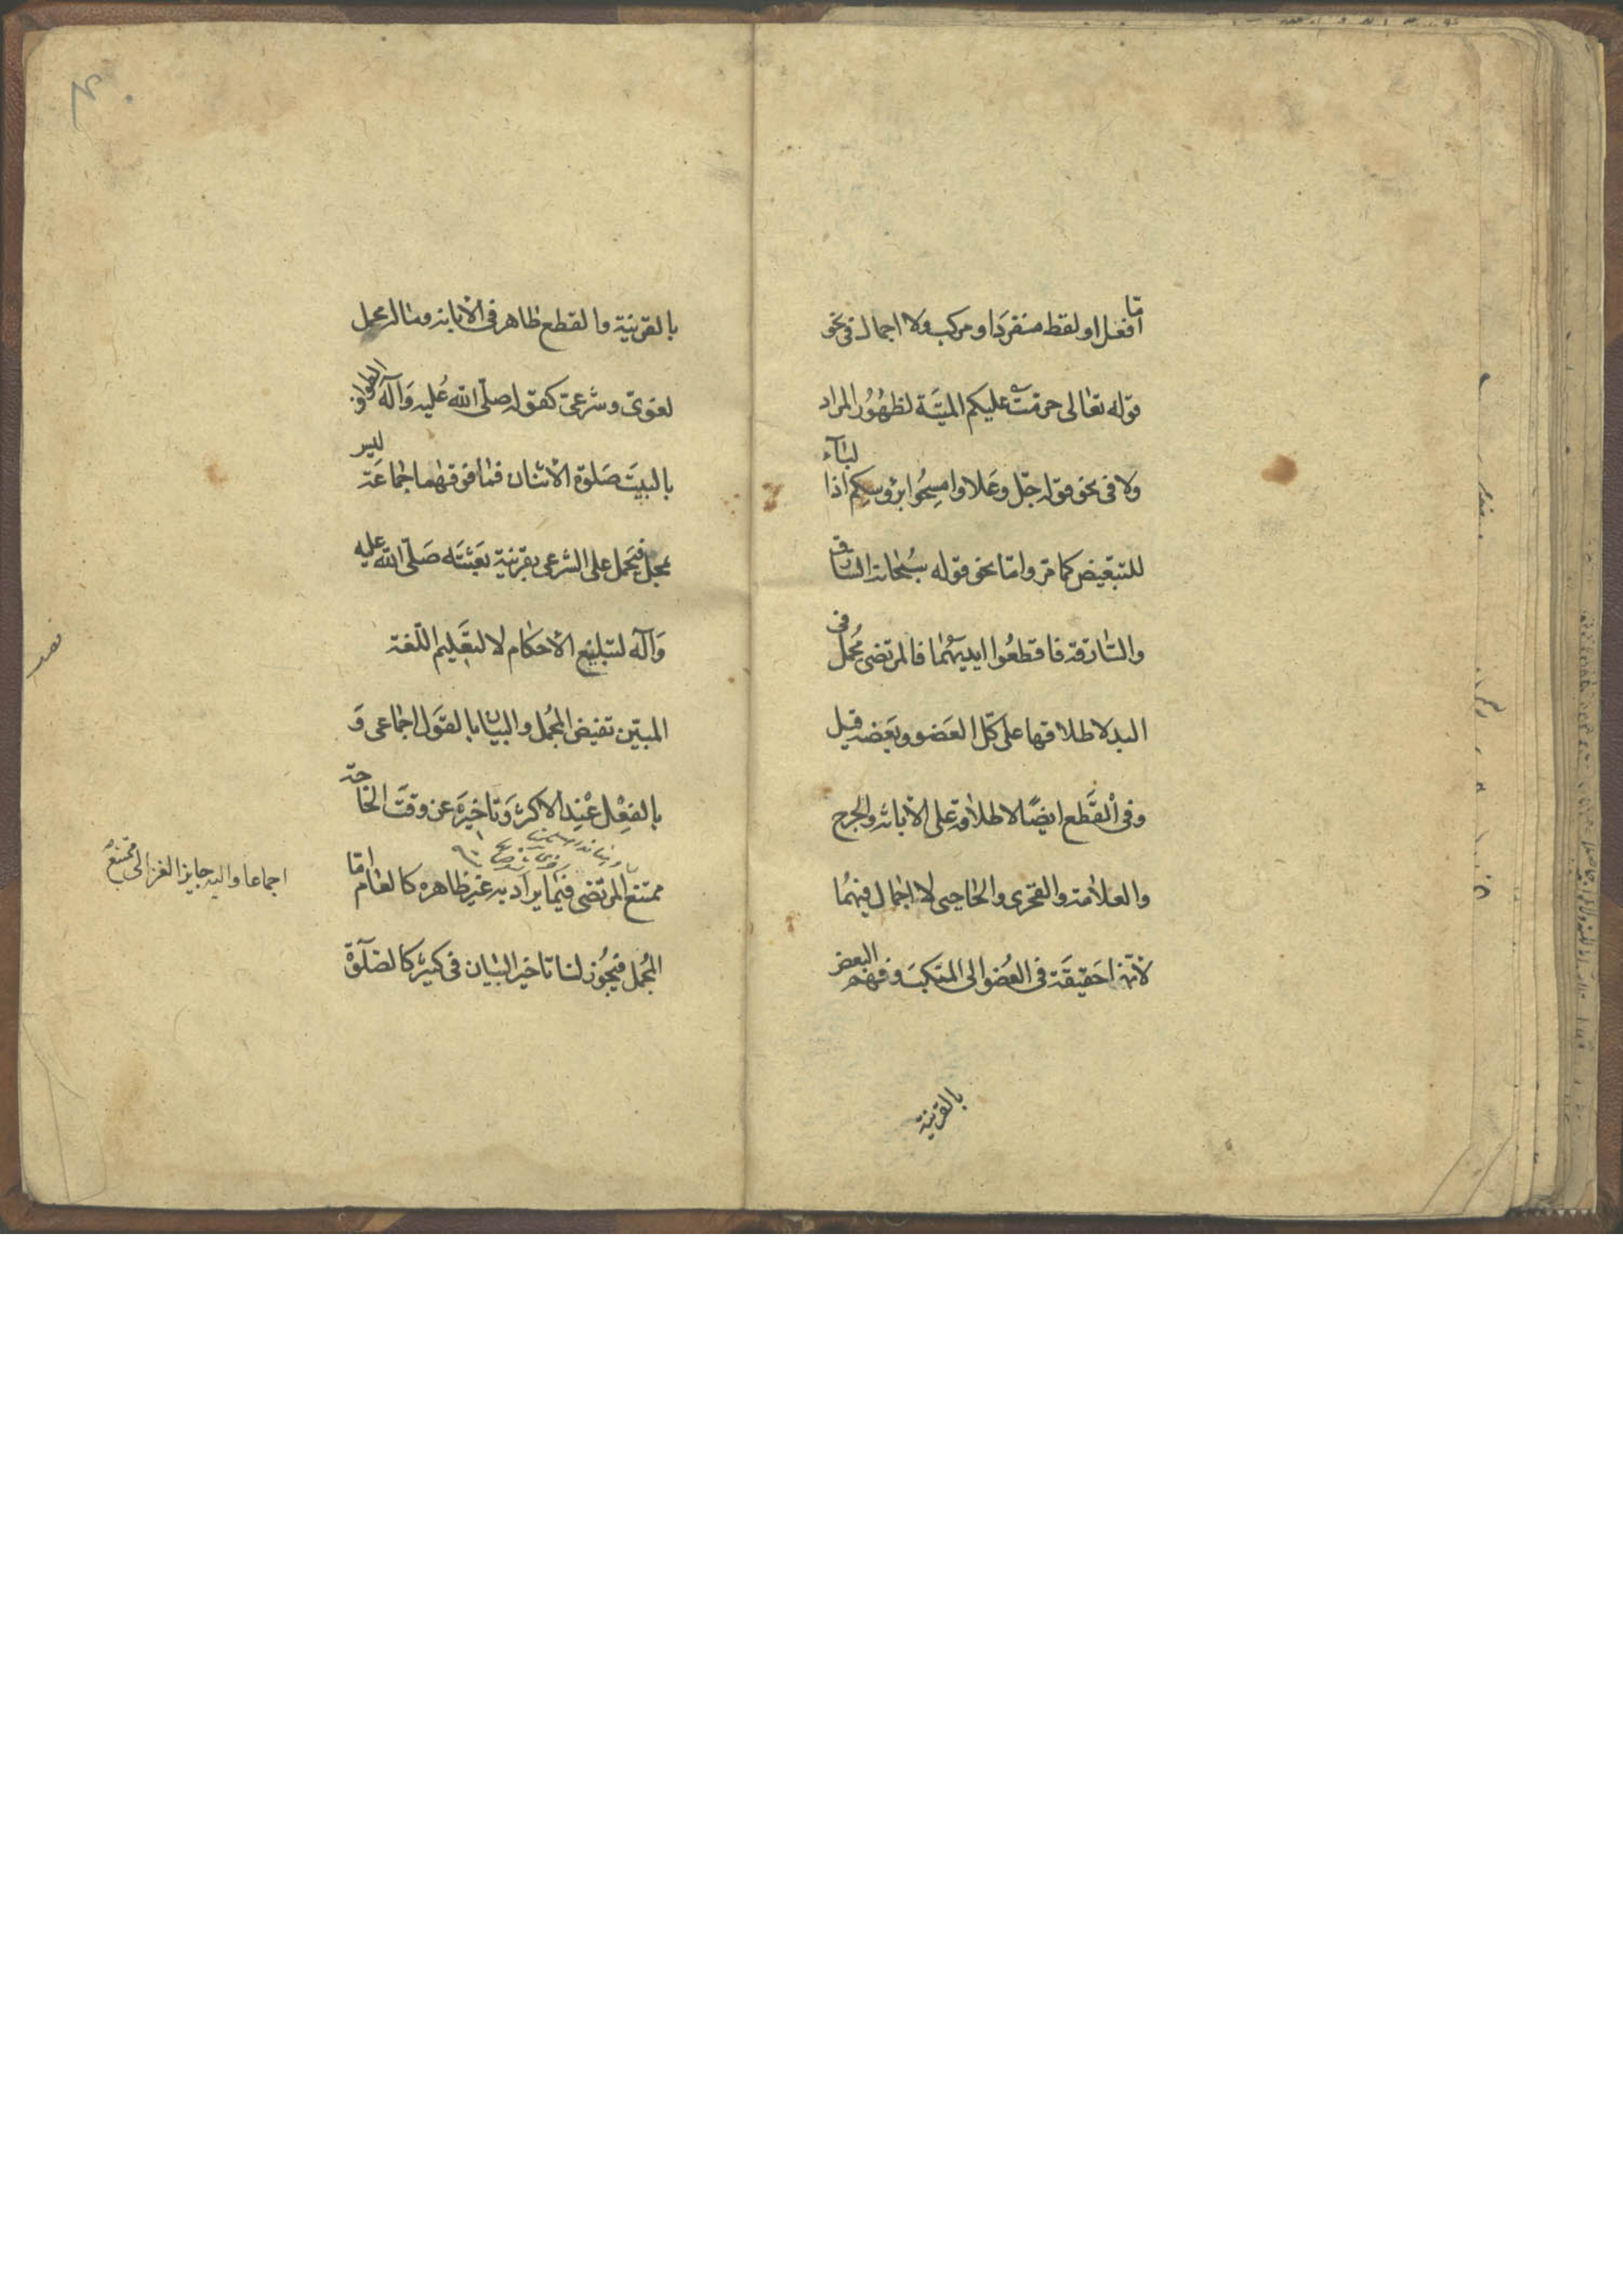 امّا فعل او لفظ منفردا او مركب ولا اجمال فى نحو
قوله تعالى حرّمت عليكم الميتة لظهور المراد
ولا فى نحو قوله جلّ وعلا وامسحوا برؤسكم اذا لباء
للتبعيض كما مرّ وامّا نحو قوله سبحانه السارق
والسّارقة فاقطعوا ايديهما فالمرتضى مجمل فى
اليد لاطلاقها على كلّ العضو وبعضه قيل
وفى القطع ايضًا لاطلاقه على الابانة والجرح
والعلامة والفخرى والحاجبى لا اجمال فيهما
لانّها حقيقة فى العضو الى المنكب وفهم البعض
بالقرينة
بالقرينة والقطع ظاهر فى الابانة وماله محمل
لغوىّ وشرعىّ كقوله صلّى الله عليه وآله الطواف
بالبيت صلوة الاثنان فما فوقهما جماعة ليس
بمجمل فيحمل على الشرعى بقرينة بعثته صلّى الله عليه
وآله لتبليغ الاحكام لا لتعليم اللّغة
المبيّن نقيض المجمل والبيان بالقول اجماعى و
بالفعل عند الاكثر وتاخيره عن وقت الحاجة
ممتنع المرتضى فيما يراد به غير ظاهره كالعام امّا
المجمل فيجوز لنا تاخير البيان فى كثير كالصلوة
اجماعا واليه جايز الغزالى ممتنع